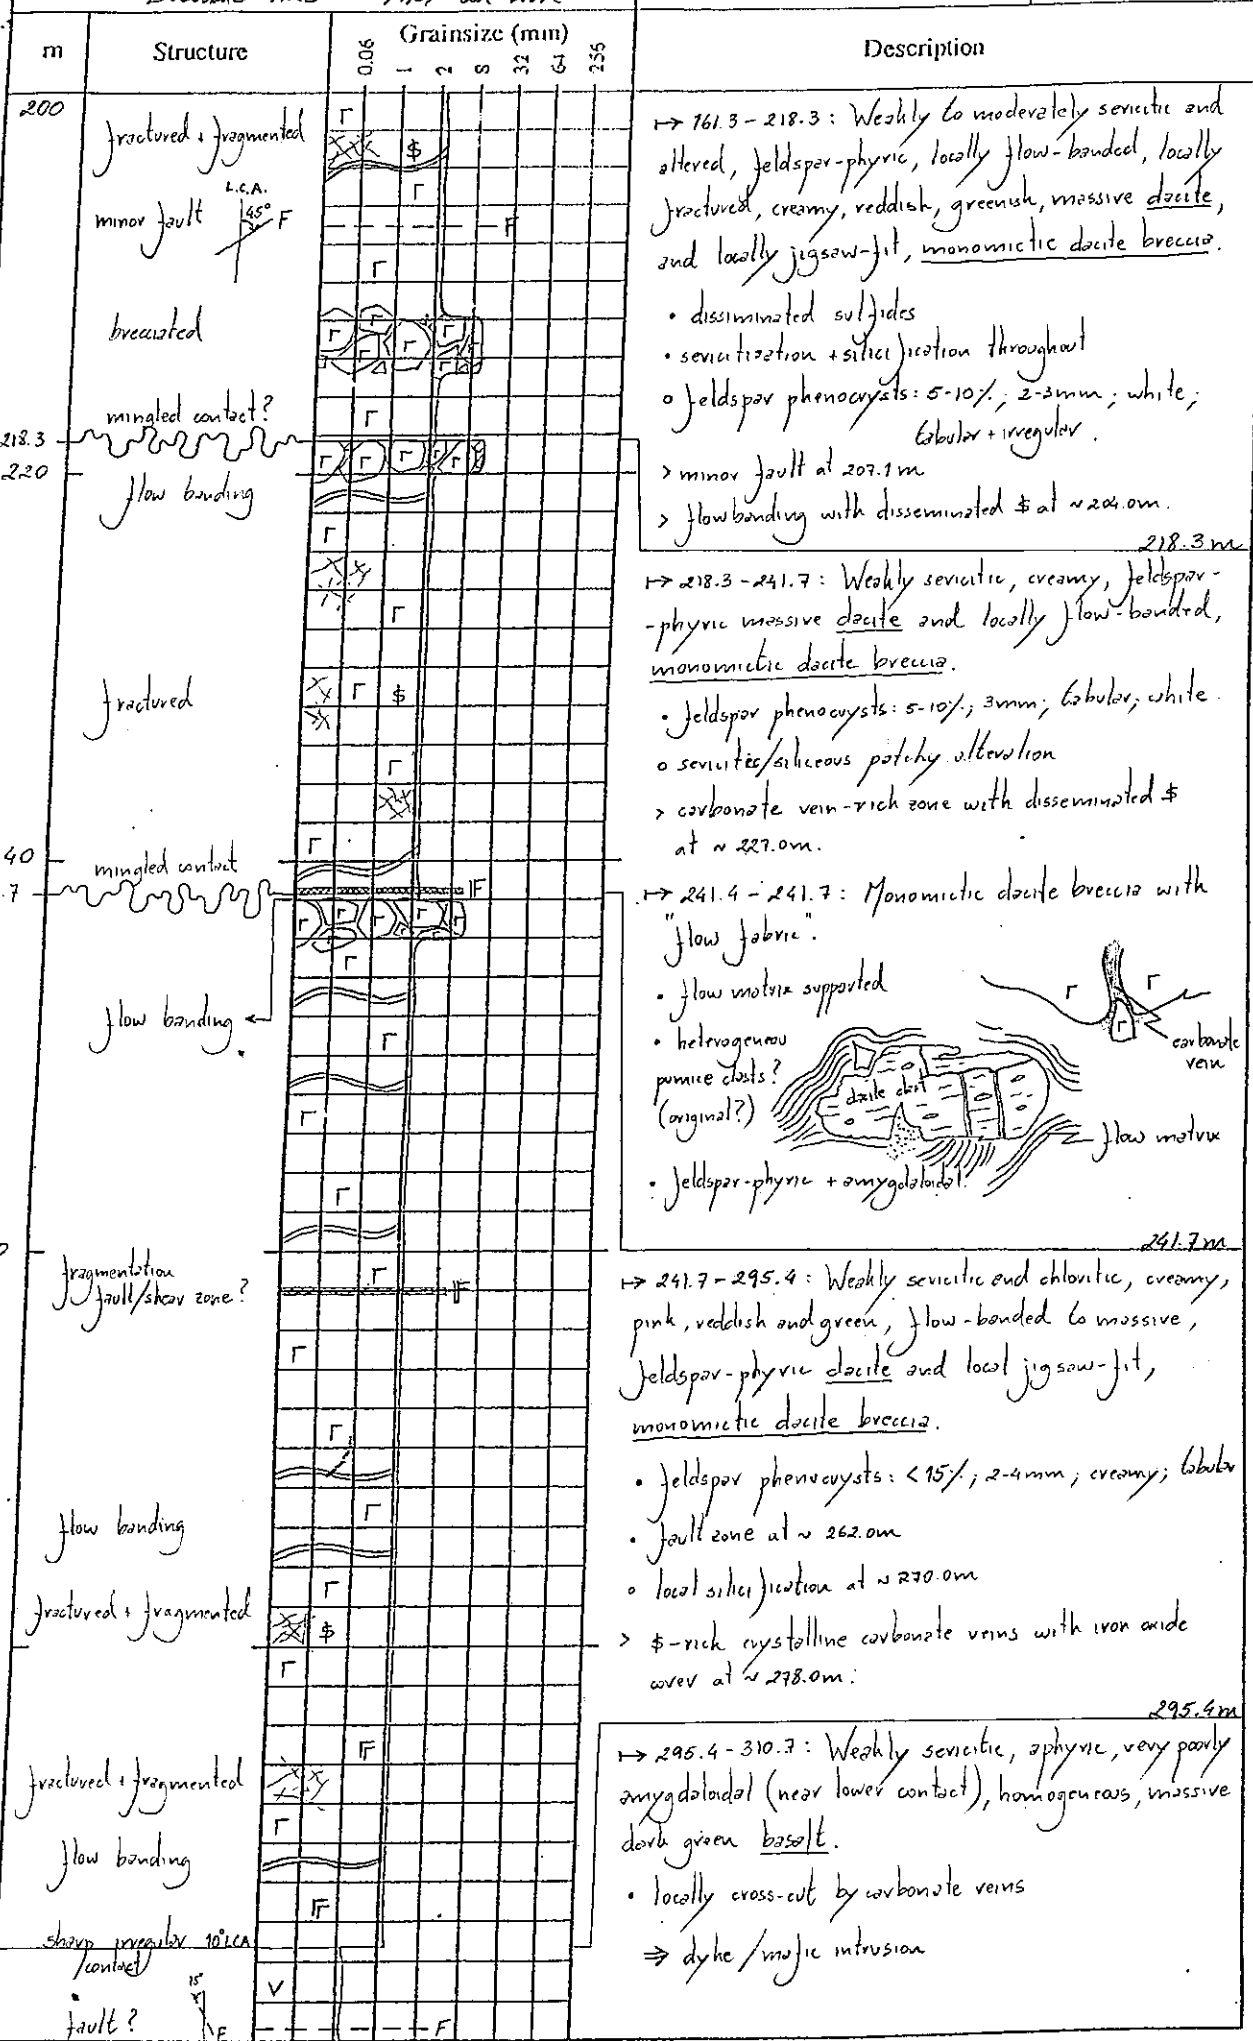 m
Structure
Grainsize (mm)
0.06
1
2
8
32
64
256
Description
200
fractured + fragmented
L.C.A.
minor fault 45° F
brecciated
mingled contact?
218.3
220
flow banding
fractured
40
mingled contact
.7
flow banding
fragmentation
fault/shear zone?
flow banding
fractured + fragmented
fractured + fragmented
flow banding
sharp irregular 10°LCA
/contact
15°
fault? F
Γ
$
Γ
F
Γ
Γ Γ Γ Γ Γ Γ
Γ
Γ Γ Γ Γ Γ
Γ
Γ
Γ $
Γ
Γ
F
Γ Γ Γ Γ Γ
Γ
Γ
Γ
Γ
Γ
F
Γ
Γ
Γ
Γ
$
Γ
F
Γ
F
V
F
↦ 161.3 - 218.3 : Weakly to moderately sericitic and
altered, feldspar-phyric, locally flow-banded, locally
fractured, creamy, reddish, greenish, massive dacite,
and locally jigsaw-fit, monomictic dacite breccia.
• dissiminated sulfides
• sericitization + silicification throughout
o feldspar phenocrysts: 5-10%; 2-3mm; white;
tabular + irregular.
> minor fault at 207.1 m
> flowbanding with disseminated $ at ~204.0m.
218.3 m
↦ 218.3-241.7 : Weakly sericitic, creamy, feldspar-
-phyric massive dacite and locally flow-banded,
monomictic dacite breccia.
• feldspar phenocrysts: 5-10%; 3mm; tabular; white.
o sericitic/siliceous patchy alteration
> carbonate vein-rich zone with disseminated $
at ~ 227.0m.
↦ 241.4 - 241.7 : Monomictic dacite breccia with
"flow fabric".
• flow matrix supported
• heterogeneou
pumice clasts?
(original?)
Γ Γ
Γ
carbonate
vein
dacite clast
flow matrix
• feldspar-phyric + amygdaloidal.
241.7m
↦ 241.7-295.4 : Weakly sericitic and chloritic, creamy,
pink, reddish and green, flow-banded to massive,
feldspar-phyric dacite and local jigsaw-fit,
monomictic dacite breccia.
• feldspar phenocrysts: <15%; 2-4mm; creamy; tabular
• fault zone at ~ 262.0m
o local silicification at ~270.0m
> $-rich crystalline carbonate veins with iron oxide
cover at ~ 278.0m.
295.4m
↦ 295.4-310.7 : Weakly sericitic, aphyric, very poorly
amygdaloidal (near lower contact), homogeneous, massive
dark green basalt.
• locally cross-cut by carbonate veins
⇒ dyke / mafic intrusion